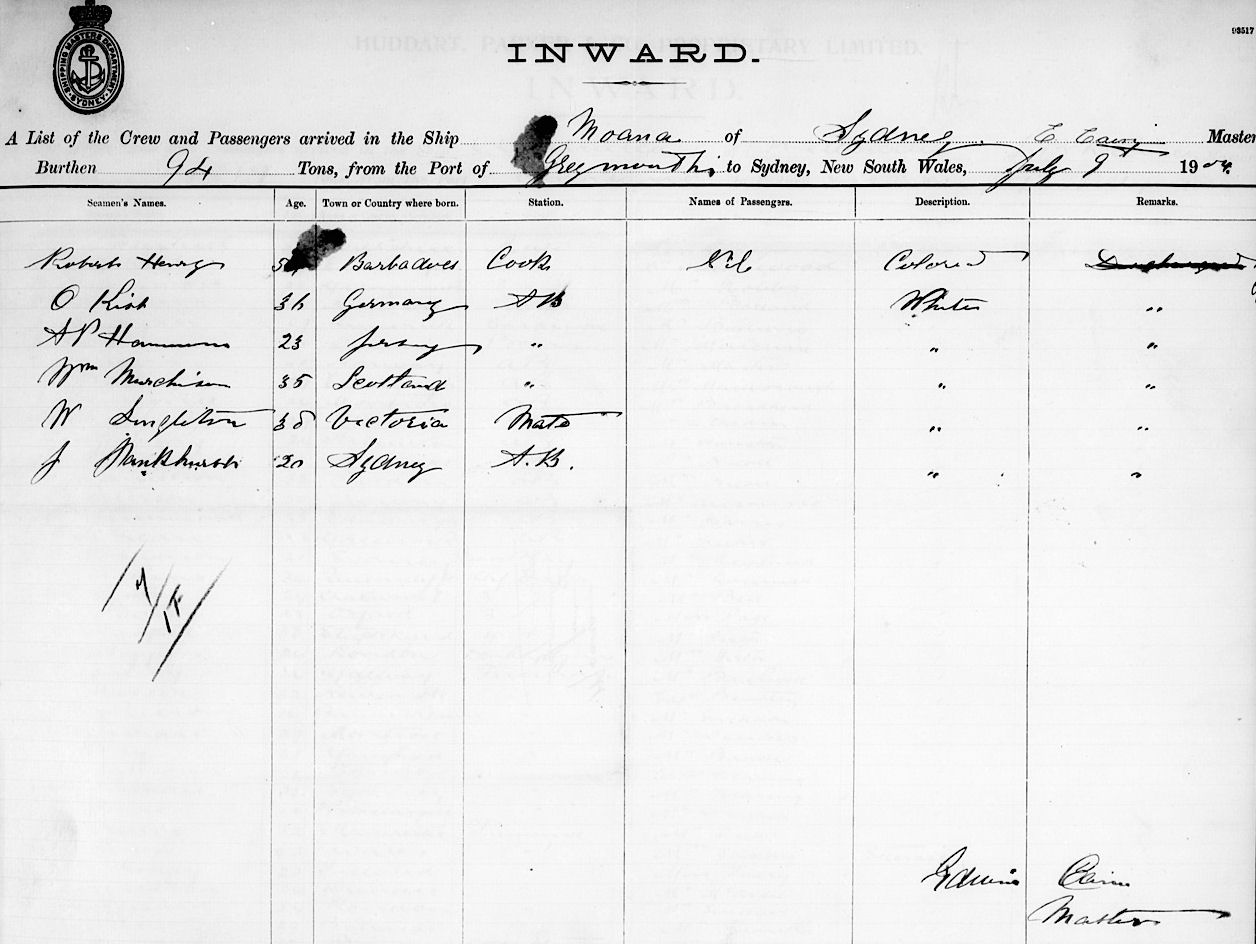 93517
SHIPPING MASTERS DEPARTMENT SYDNEY
HUDDART, PARKER PROPRIETARY LIMITED.
INWARD.
A List of the Crew and Passengers arrived in the Ship Moana of Sydney E Master
Burthen 94 Tons, from the Port of Greymouth to Sydney, New South Wales, July 9 190
Seamen's Names. Age. Town or Country where born. Station. Names of Passengers. Description. Remarks.
Roberts Henry Barbadoes Cook Nil Colored
O 36 Germany AB White "
A P 23 Jersey " " "
Wm Murchison 35 Scotland " " "
W Singleton 38 Victoria Mate " "
J Pankhurst 20 Sydney A.B. " "
Edwin
Master